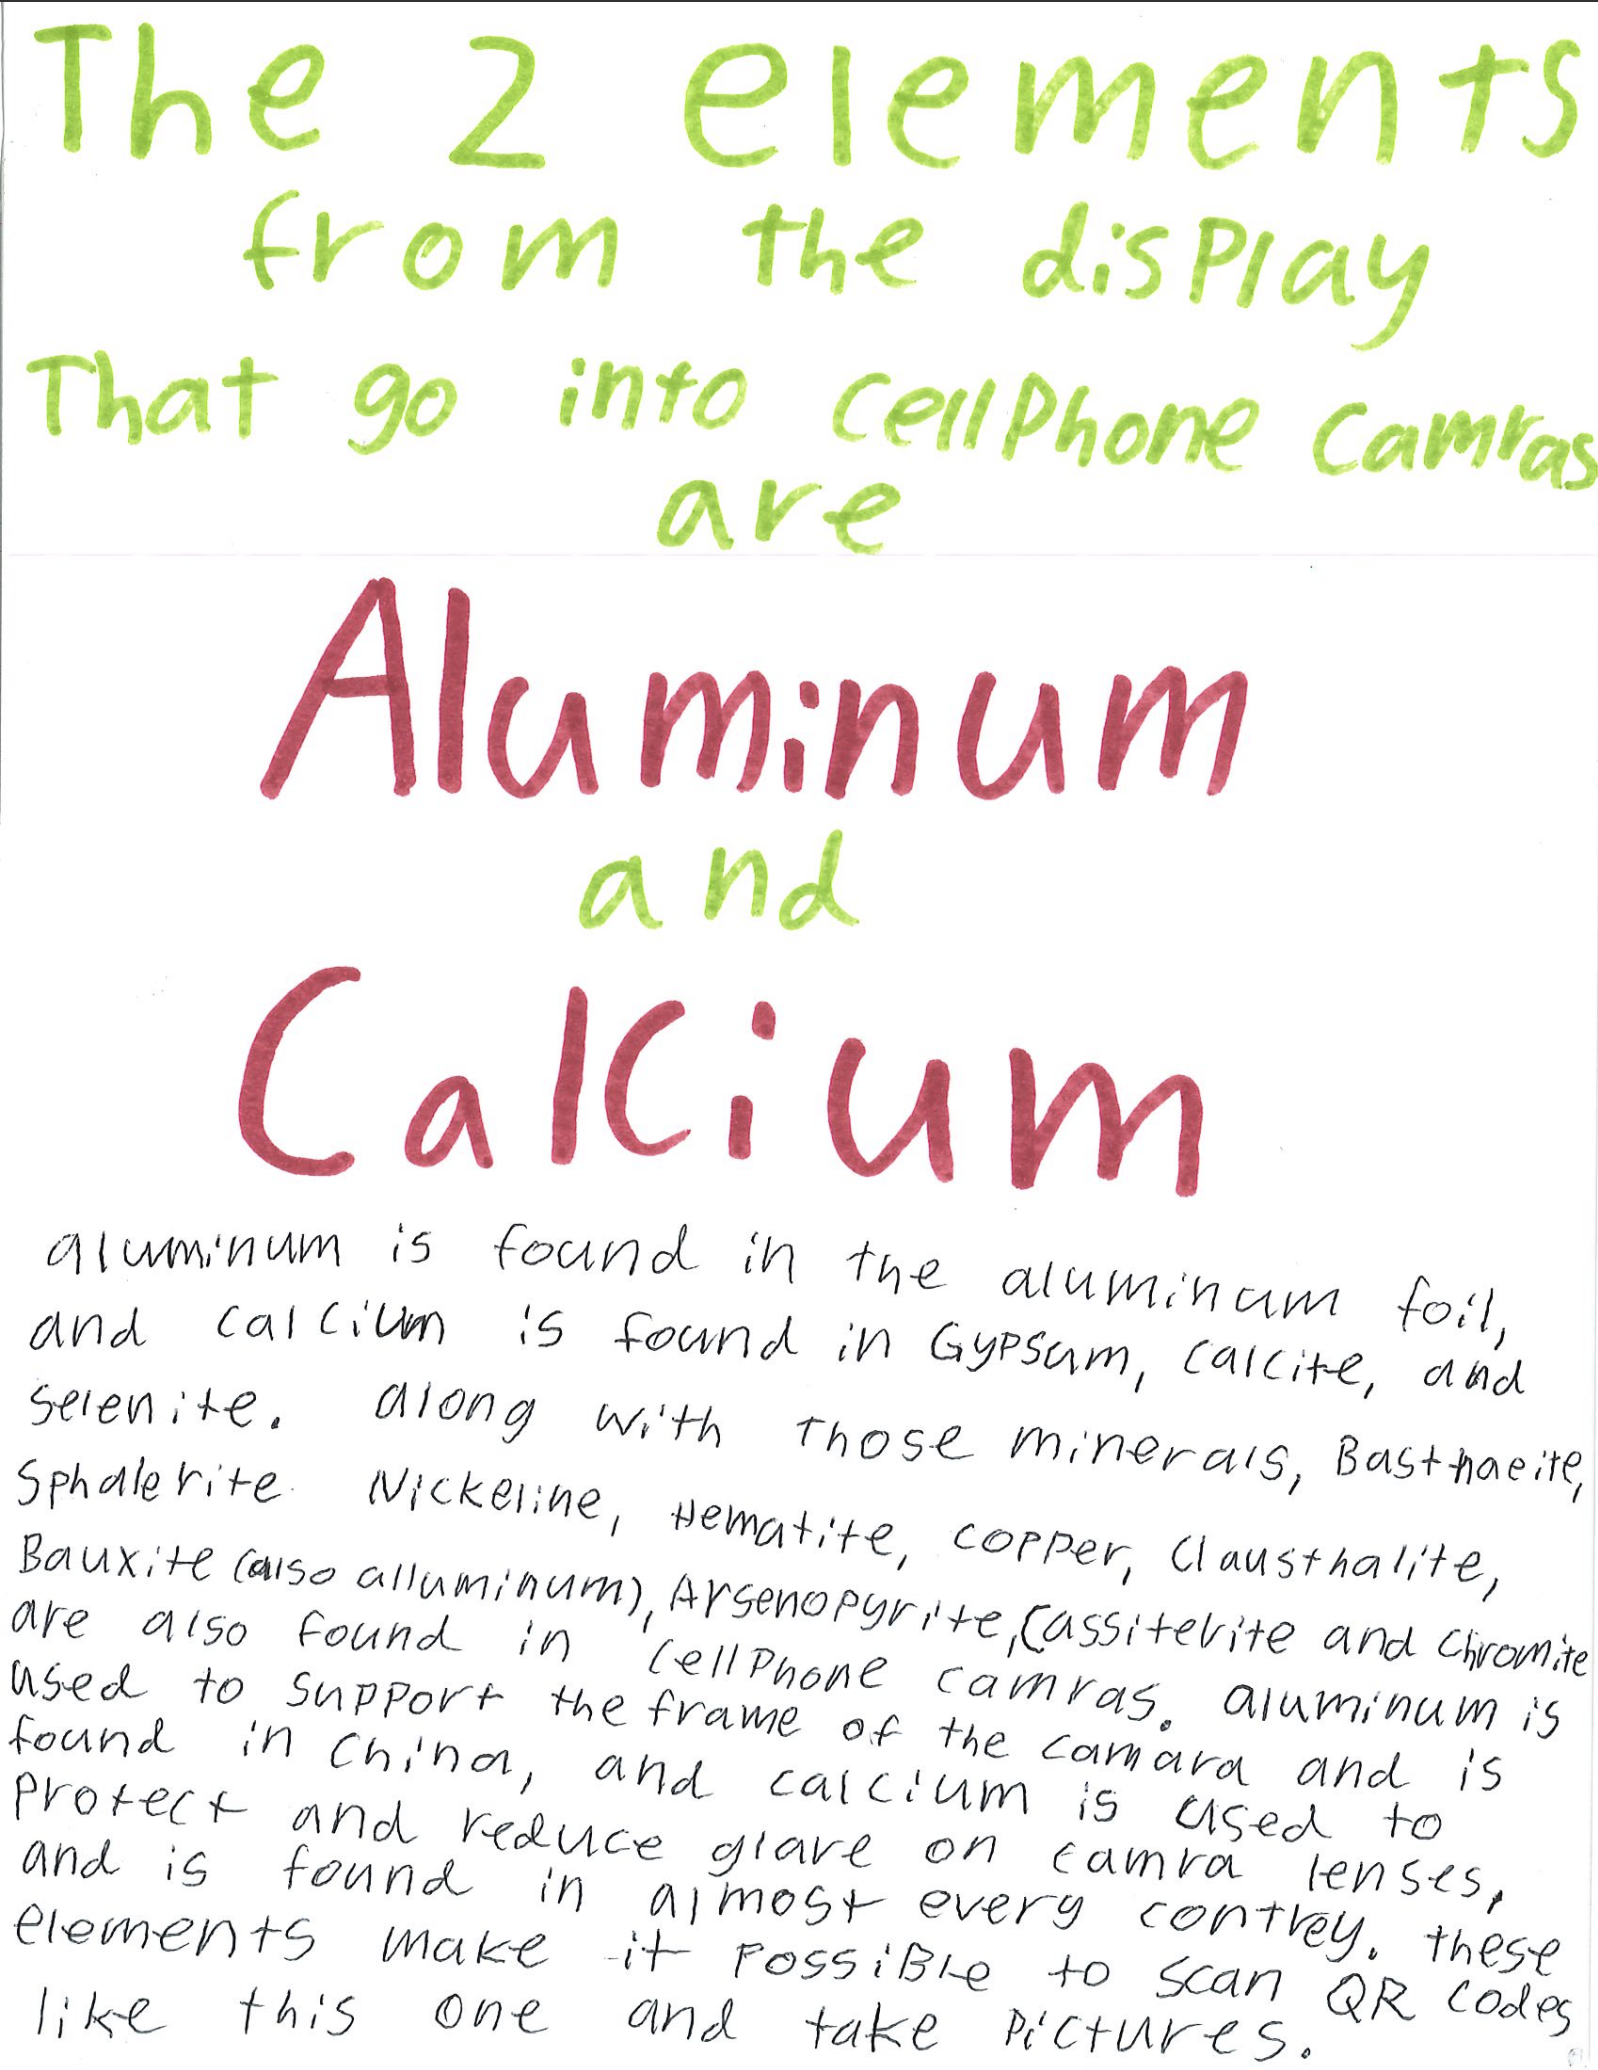 The 2 elements
from the display
That go into cellphone camras
are
Aluminum
and
Calcium
aluminum is found in the aluminum foil,
and calcium is found in Gypsum, calcite, and
selenite. along with those minerals, Bastnaeite,
Sphalerite Nickeline, Hematite, copper, Clausthalite,
Bauxite (also alluminum), Arsenopyrite, Cassiterite and chromite
are also found in cellphone camras. aluminum is
used to support the frame of the camara and is
found in china, and calcium is used to
protect and reduce glare on camra lenses,
and is found in almost every contrey. these
elements make it possible to scan QR codes
like this one and take pictures.